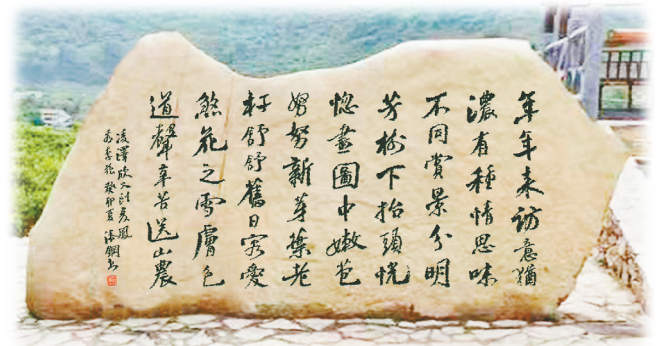 年年来訪意猶
濃有種情思味
不同賞景分明
芳樹下抬頭恍
惚畫圖中嫩苞
努努新芽葉老
杆舒舒舊日容愛
煞花之雪膚色
道聲辛苦送山農
凌澤欣
癸卯夏